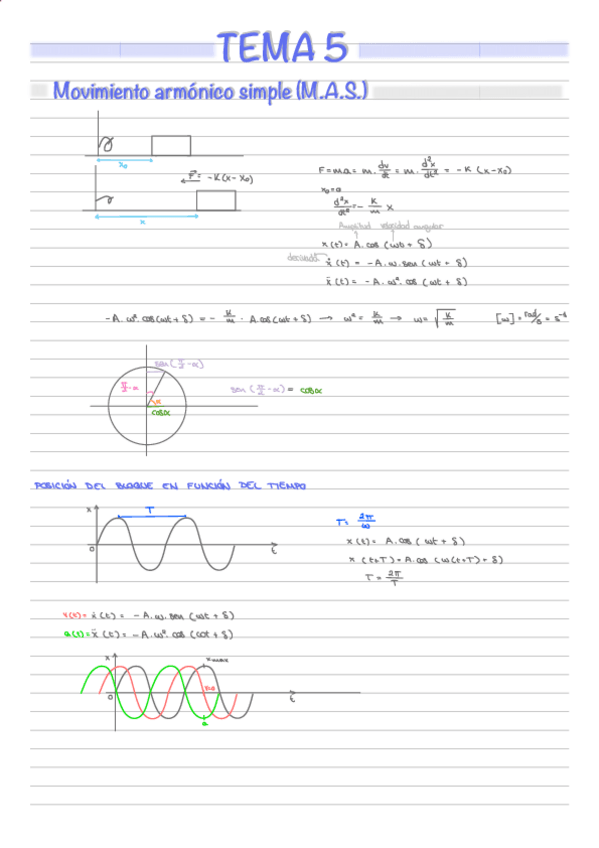 TEMA 5
Movimiento armónico simple (M.A.S.)
x₀
F = -K(x-x₀)
x
F=ma= m. dv/dt = m. d²x/dt² = -K (x-x₀)
x₀=0
d²x/dt² = - K/m x
Amplitud velocidad angular
x(t)= A. cos (ωt + δ)
derivada ẋ(t) = -A.ω.sen (ωt + δ)
ẍ(t) = -A.ω². cos (ωt + δ)
-A. ω². cos(ωt + δ) = - K/m · A.cos(ωt + δ) → ω² = K/m → ω= √K/m [ω] = rad/s = s⁻¹
sen(π/2-α)
π/2-α
α
cosα
sen(π/2-α) = cosα
POSICIÓN DEL BLOQUE EN FUNCIÓN DEL TIEMPO
x
T
0
t
T= 2π/ω
x(t)= A. cos( ωt + δ)
x (t+T) = A.cos (ω(t+T) + δ)
T = 2π/T
v(t)= ẋ(t) = -A.ω.sen (ωt + δ)
a(t)= ẍ(t) = -A.ω². cos (ωt + δ)
x
xmax
0
t
a